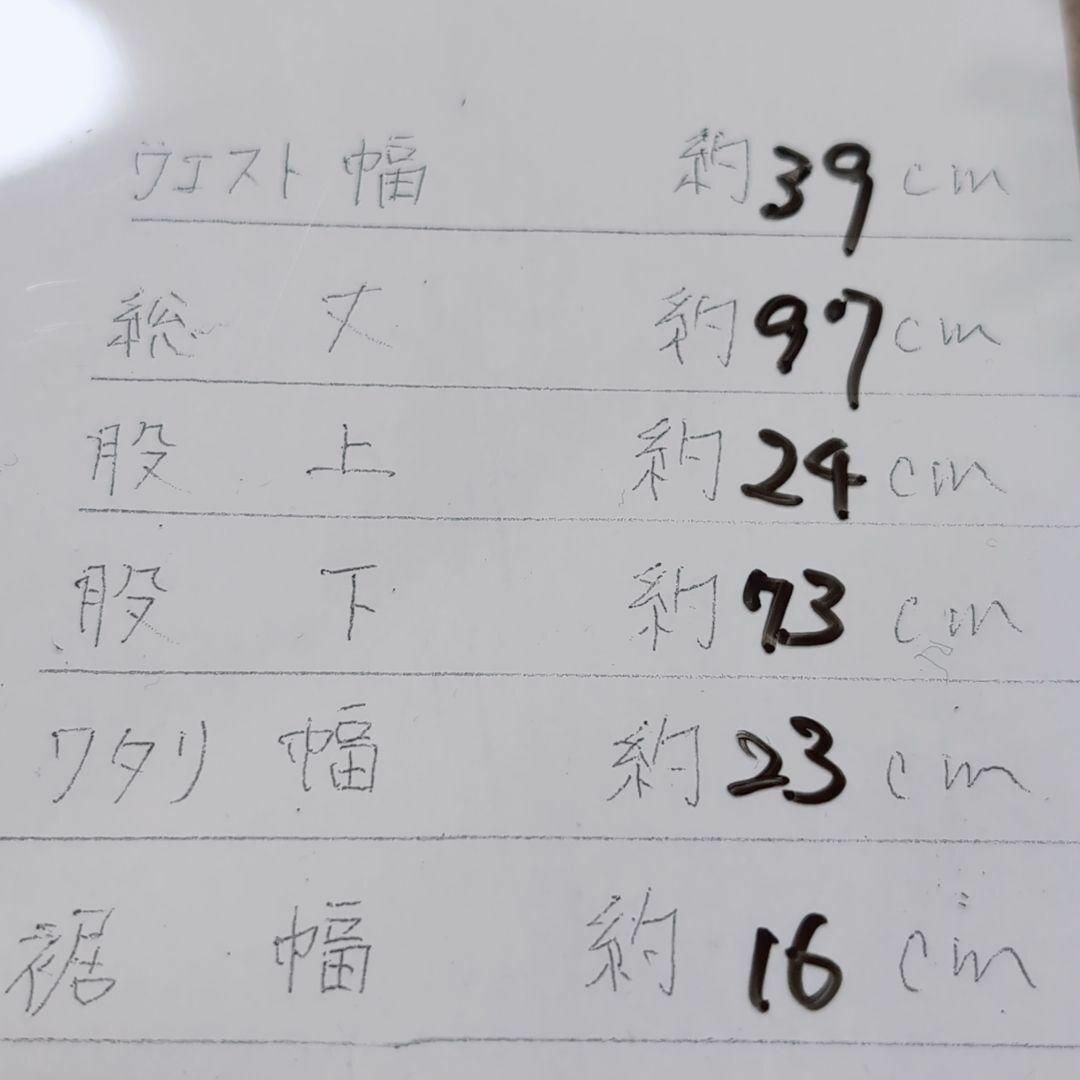 ウエスト幅 約39cm
総丈 約97cm
股上 約24cm
股下 約73cm
ワタリ幅 約23cm
裾幅 約16cm